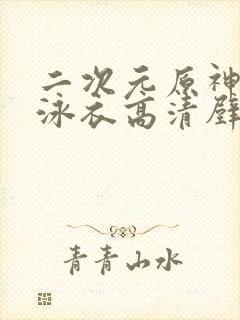 二次元原神
泳衣高清壁
青青山水